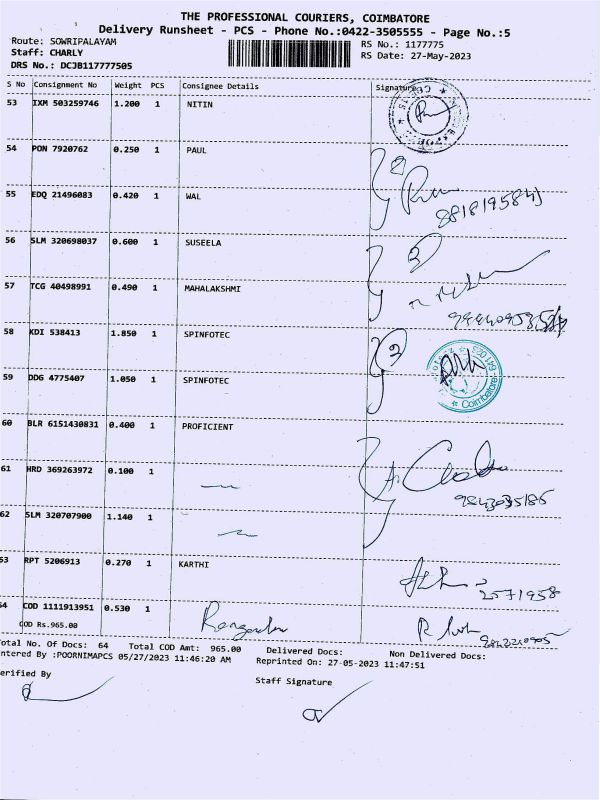 THE PROFESSIONAL COURIERS, COIMBATORE
Delivery Runsheet - PCS - Phone No.:0422-3505555 - Page No.:5
Route: SOWRIPALAYAM RS No.: 1177775
Staff: CHARLY RS Date: 27-May-2023
DRS No.: DCJB117777505
S No Consignment No Weight PCS Consignee Details Signature
53 IXM 503259746 1.200 1 NITIN
54 PON 7920762 0.250 1 PAUL
55 EDQ 21496083 0.420 1 WAL
56 SLM 320698037 0.600 1 SUSEELA
57 TCG 40498991 0.490 1 MAHALAKSHMI
58 KDI 538413 1.850 1 SPINFOTEC
59 DDG 4775407 1.050 1 SPINFOTEC
Coimbatore
60 BLR 6151430831 0.400 1 PROFICIENT
61 HRD 369263972 0.100 1
9843035186
62 SLM 320707900 1.140 1
63 RPT 5206913 0.270 1 KARTHI
2571958
64 COD 1111913951 0.530 1
COD Rs.965.00
Total No. Of Docs: 64 Total COD Amt: 965.00 Delivered Docs: Non Delivered Docs:
ntered By :POORNIMAPCS 05/27/2023 11:46:20 AM Reprinted On: 27-05-2023 11:47:51
erified By Staff Signature